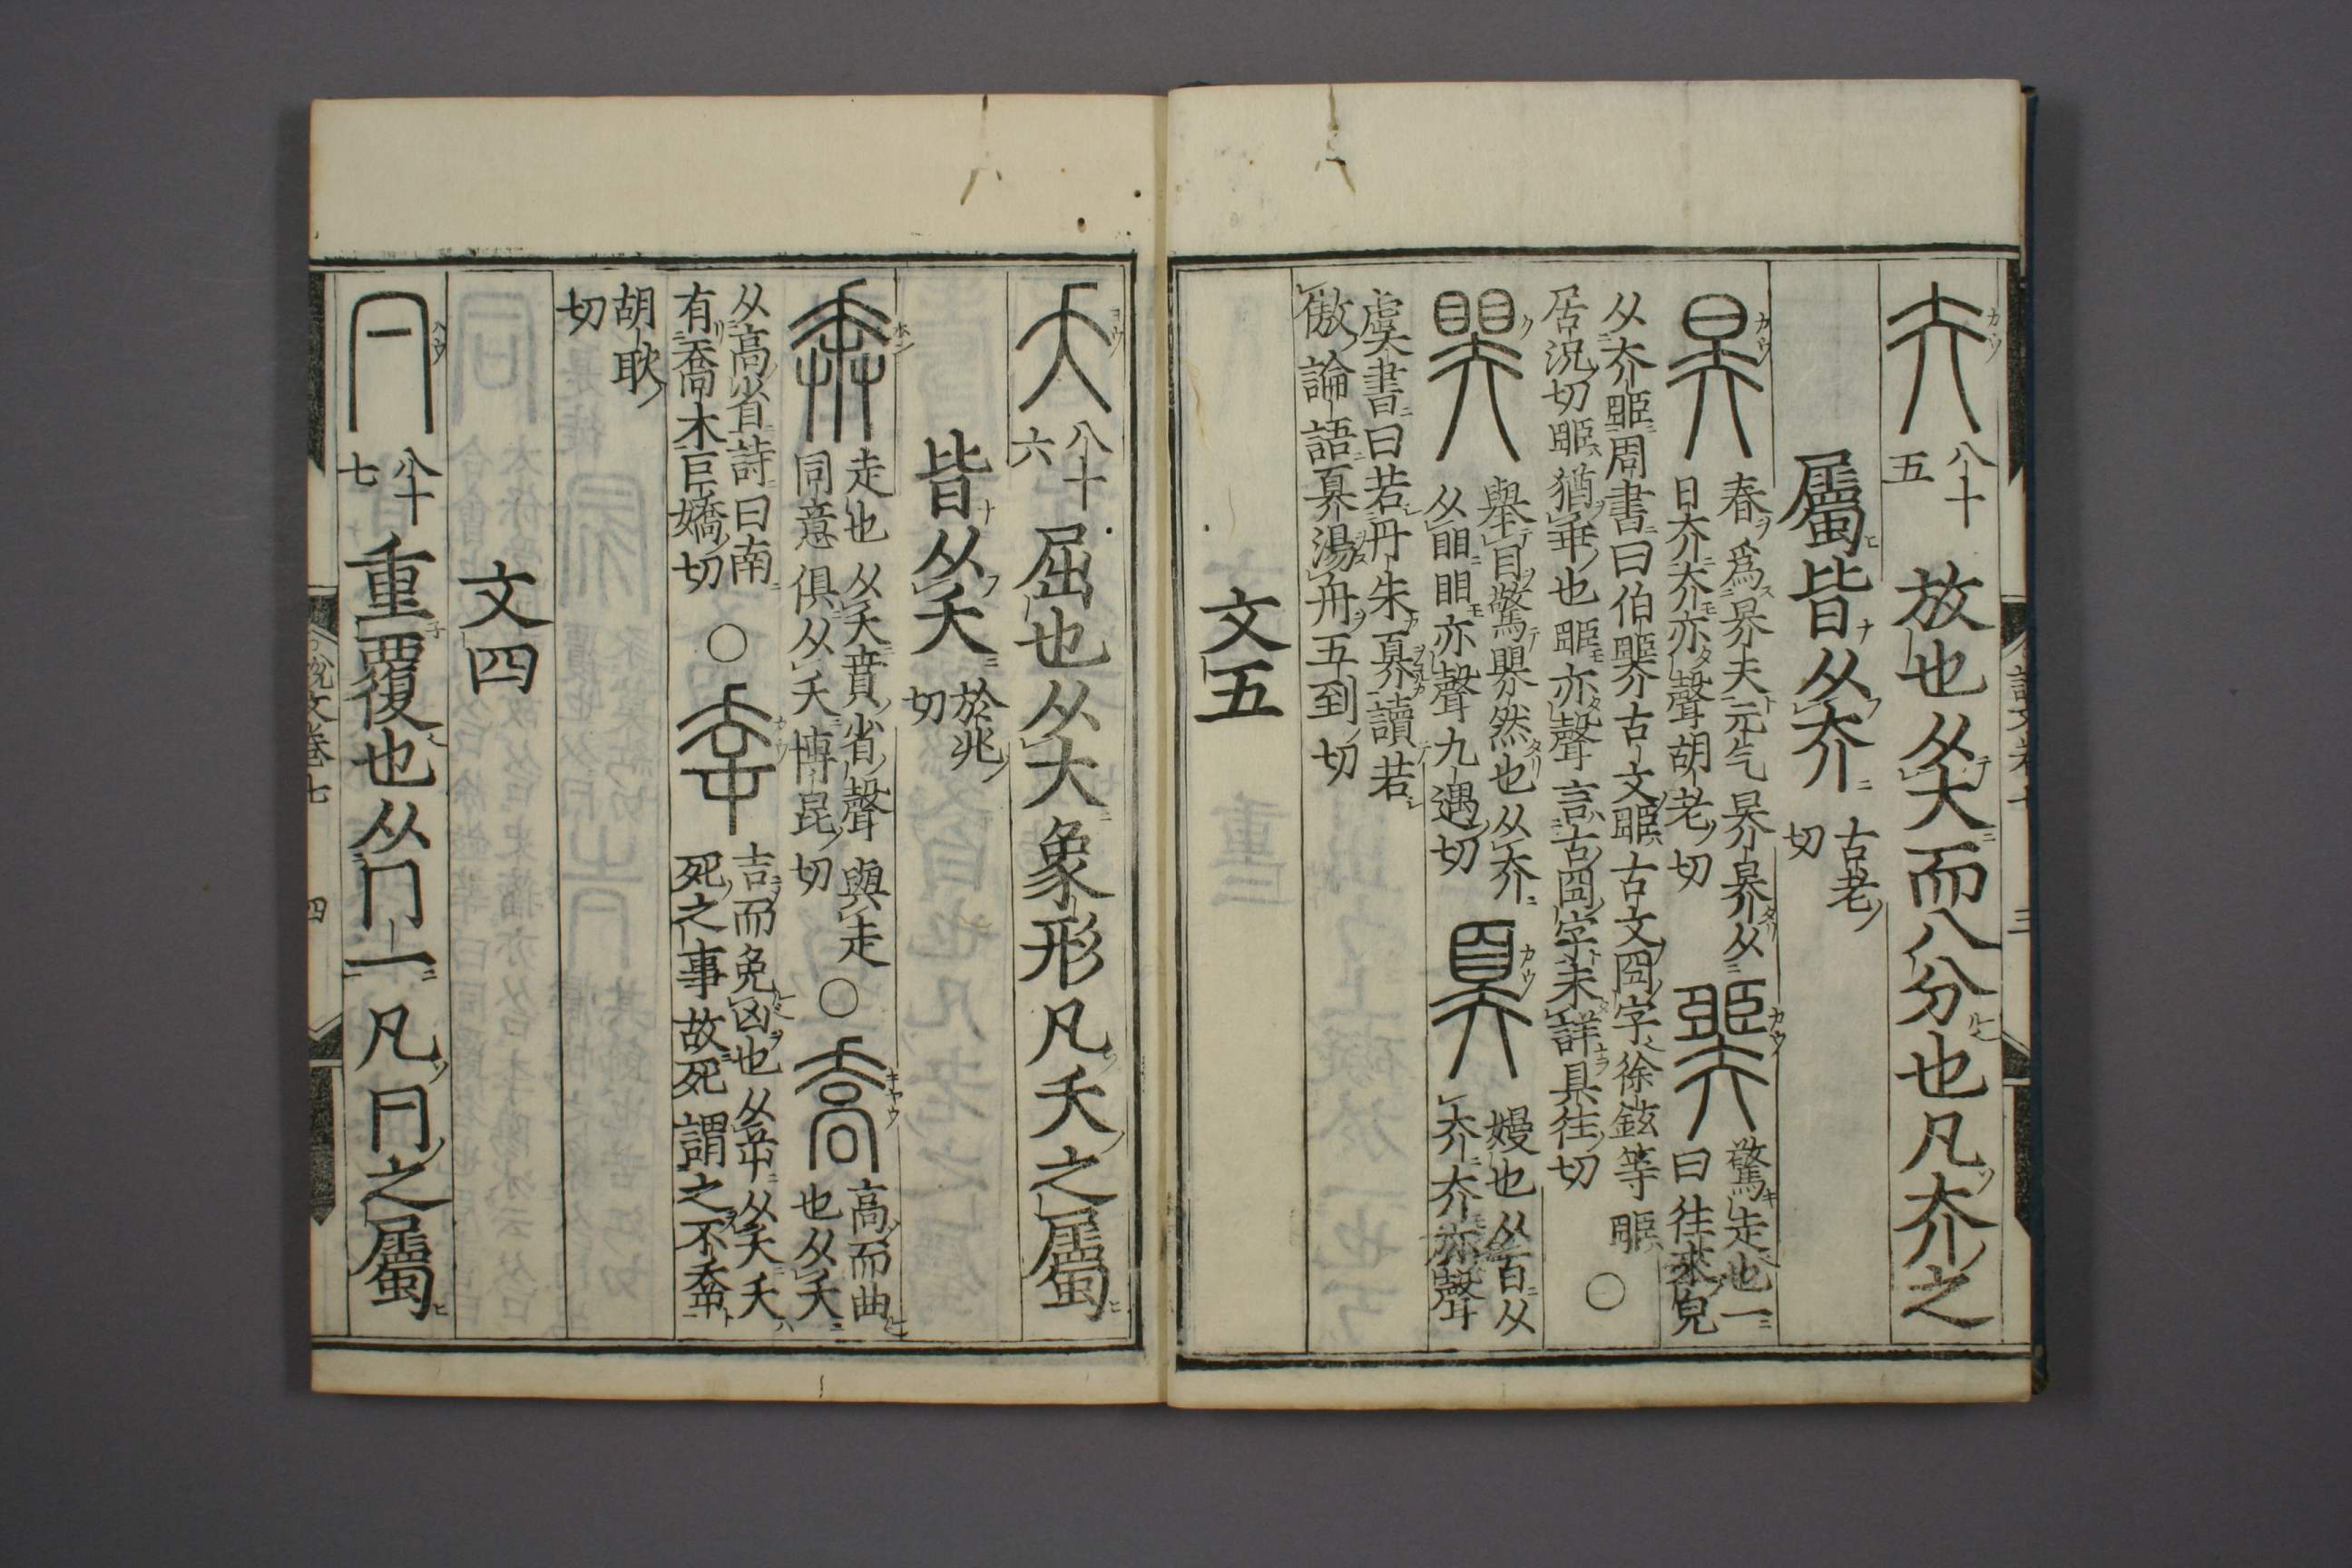 夰 八十五 放也从大而八分也凡夰之
屬皆从夰 古老切
昦 春爲昦天元气昦昦从日夰夰亦聲胡老切
臩 驚走也一曰往來皃
从夰臦周書曰伯臩古文臦古文囧字徐鉉等
居況切臦猶乖也臦亦聲言古囧字未詳具往切
○
䀠 舉目驚䀠然也从夰从䀠䀠亦聲九遇切
奡 嫚也从百从夰夰亦聲
虞書曰若丹朱奡讀若
傲論語奡湯舟五到切
文五
夭 八十六 屈也从大象形凡夭之屬
皆从夭 於兆切
奔 走也从夭賁省聲與走同意俱从夭博昆切
○
喬 高而曲也从夭
从高省詩曰南
有喬木巨嬌切
○
㚔 吉而免凶也从屰从夭夭死之事故死謂之不㚔
胡耿
切
文四
冃 八十七 重覆也从冂一凡冃之屬
說文卷七 四